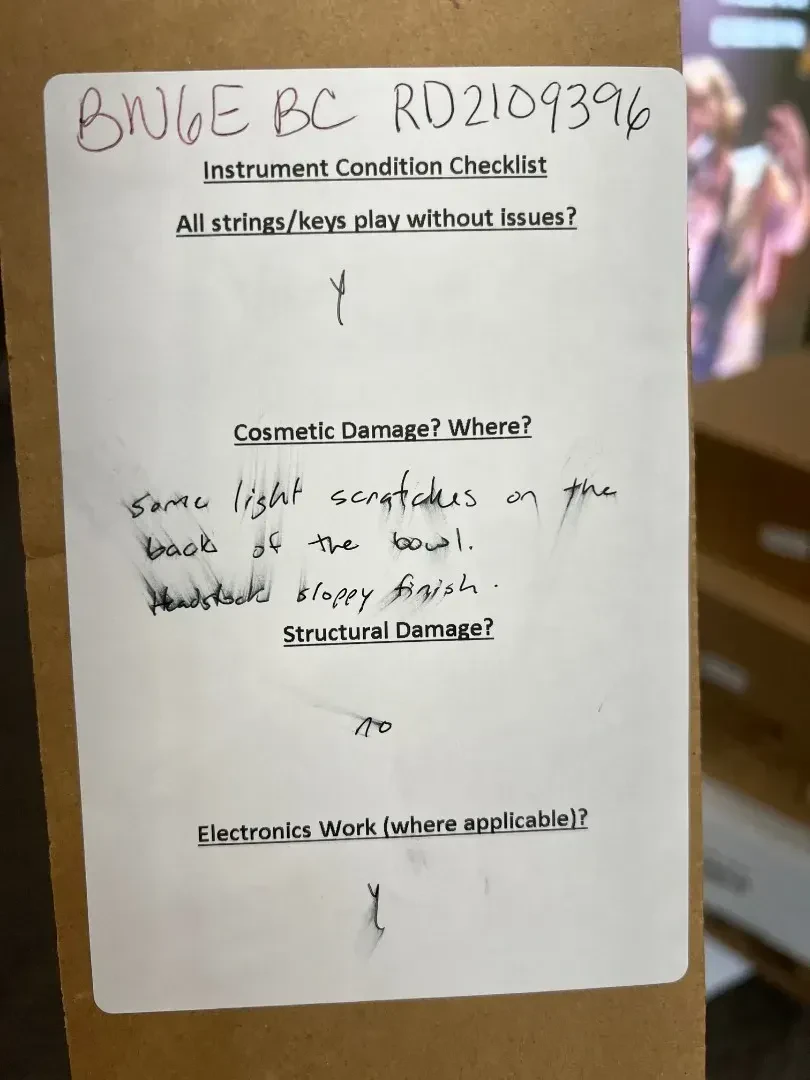 BW6E BC RD2109396
Instrument Condition Checklist
All strings/keys play without issues?
Y
Cosmetic Damage? Where?
some light scratches on the
back of the bowl.
Headstock sloppy finish.
Structural Damage?
no
Electronics Work (where applicable)?
Y